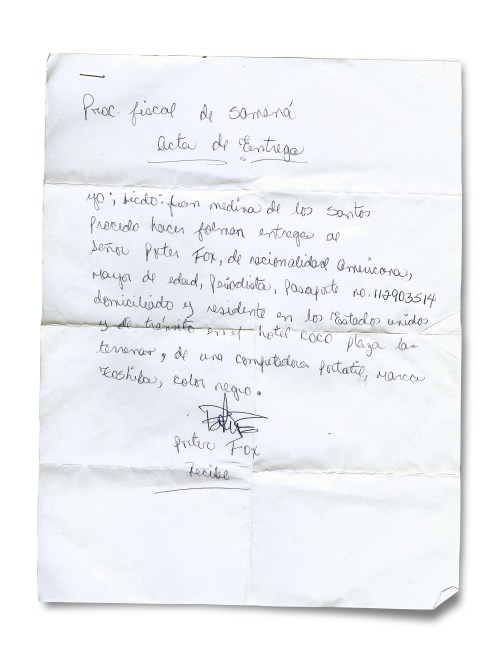 Proc. fiscal de samaná
acta de Entrega
yo; licdo: fran medina de los santos
Procedo hacer formar entrega al
Señor Porter Fox, de nacionalidad americana,
mayor de edad, Periodista, Pasaporte no. 112903514
domiciliado y residente en los Estados unidos
y de tránsito en el hotel coco plaza las
terrenas, de una computadora portatil, marca
Toshiba, color negro.
Porter Fox
Recibe